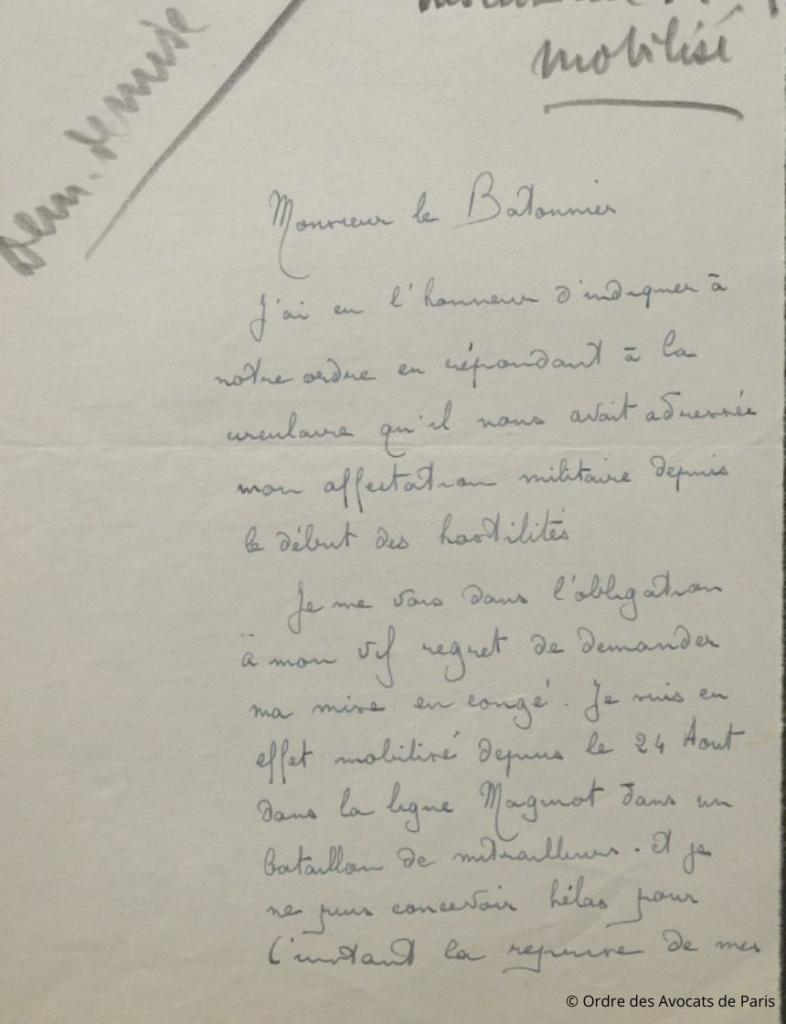 mobilisé
Dem. remise
Monsieur le Batonnier
J'ai eu l'honneur d'indiquer à
notre ordre en répondant à la
circulaire qu'il nous avait adressée
mon affectation militaire depuis
le début des hostilités
Je me vois dans l'obligation
à mon vif regret de demander
ma mise en congé. Je suis en
effet mobilisé depuis le 24 Aout
dans la ligne Maginot dans un
bataillon de mitrailleurs. Et je
ne puis concevoir hélas pour
l'instant la reprise de mes
© Ordre des Avocats de Paris